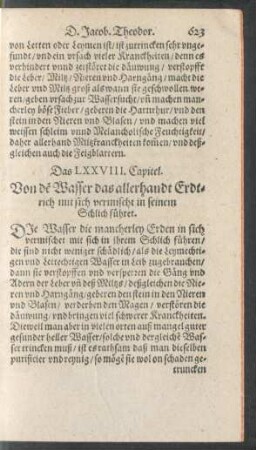 D. Jacob. Theodor. 623
von Letten oder Leymen ist/ ist zutrincken sehr vnge-
fundt/ vnd ein vrsach vieler Kranckheiten/ denn es
verhindert vnnd zerstöret die däuwung/ verstopfft
die Leber/ Miltz/ Nieren vnd Harngäng/ macht die
Leber vnd Miltz groß als wann sie geschwollen we-
ren/ geben vrsach zur Wassersucht/ vñ machen man-
cherley böse Fieber/ geberen die Hartrhur/ vnd den
stein in den Nieren vnd Blasen/ vnd machen viel
weissen schleim vnnd Melancholische Feuchtigkeit/
daher allerhand Miltzkranckheiten komen/ vnd deß-
gleichen auch die Feigblattern.
Das LXXVIII. Capitel.
Von dē Wasser das allerhandt Erdt-
rich mit sich vermischt in seinem
Schlich führet.
DIe Wasser die mancherley Erden in sich
vermischet mit sich in ihrem Schlich führen/
die sind nicht weniger schädlich/ als die Leymechti-
gen vnd Lettechtigen Wasser in Leib zugebrauchen/
dann sie verstopffen vnd versperren die Gäng vnd
Adern der Leber vñ deß Miltzs/ deßgleichen die Nie-
ren vnd Harngäng/ geberen den stein in den Nieren
vnd Blasen/ verderben den Magen/ verstören die
däuwung/ vnd bringen viel schwerer Kranckheiten.
Dieweil man aber in vielen orten auß mangel guter
gesunder heller Wasser/ solche vnd dergleichē Was-
ser trincken muß/ ist es rathsam daß man dieselben
purificier vnd reynig/ so möge sie wol on schaden ge-
truncken